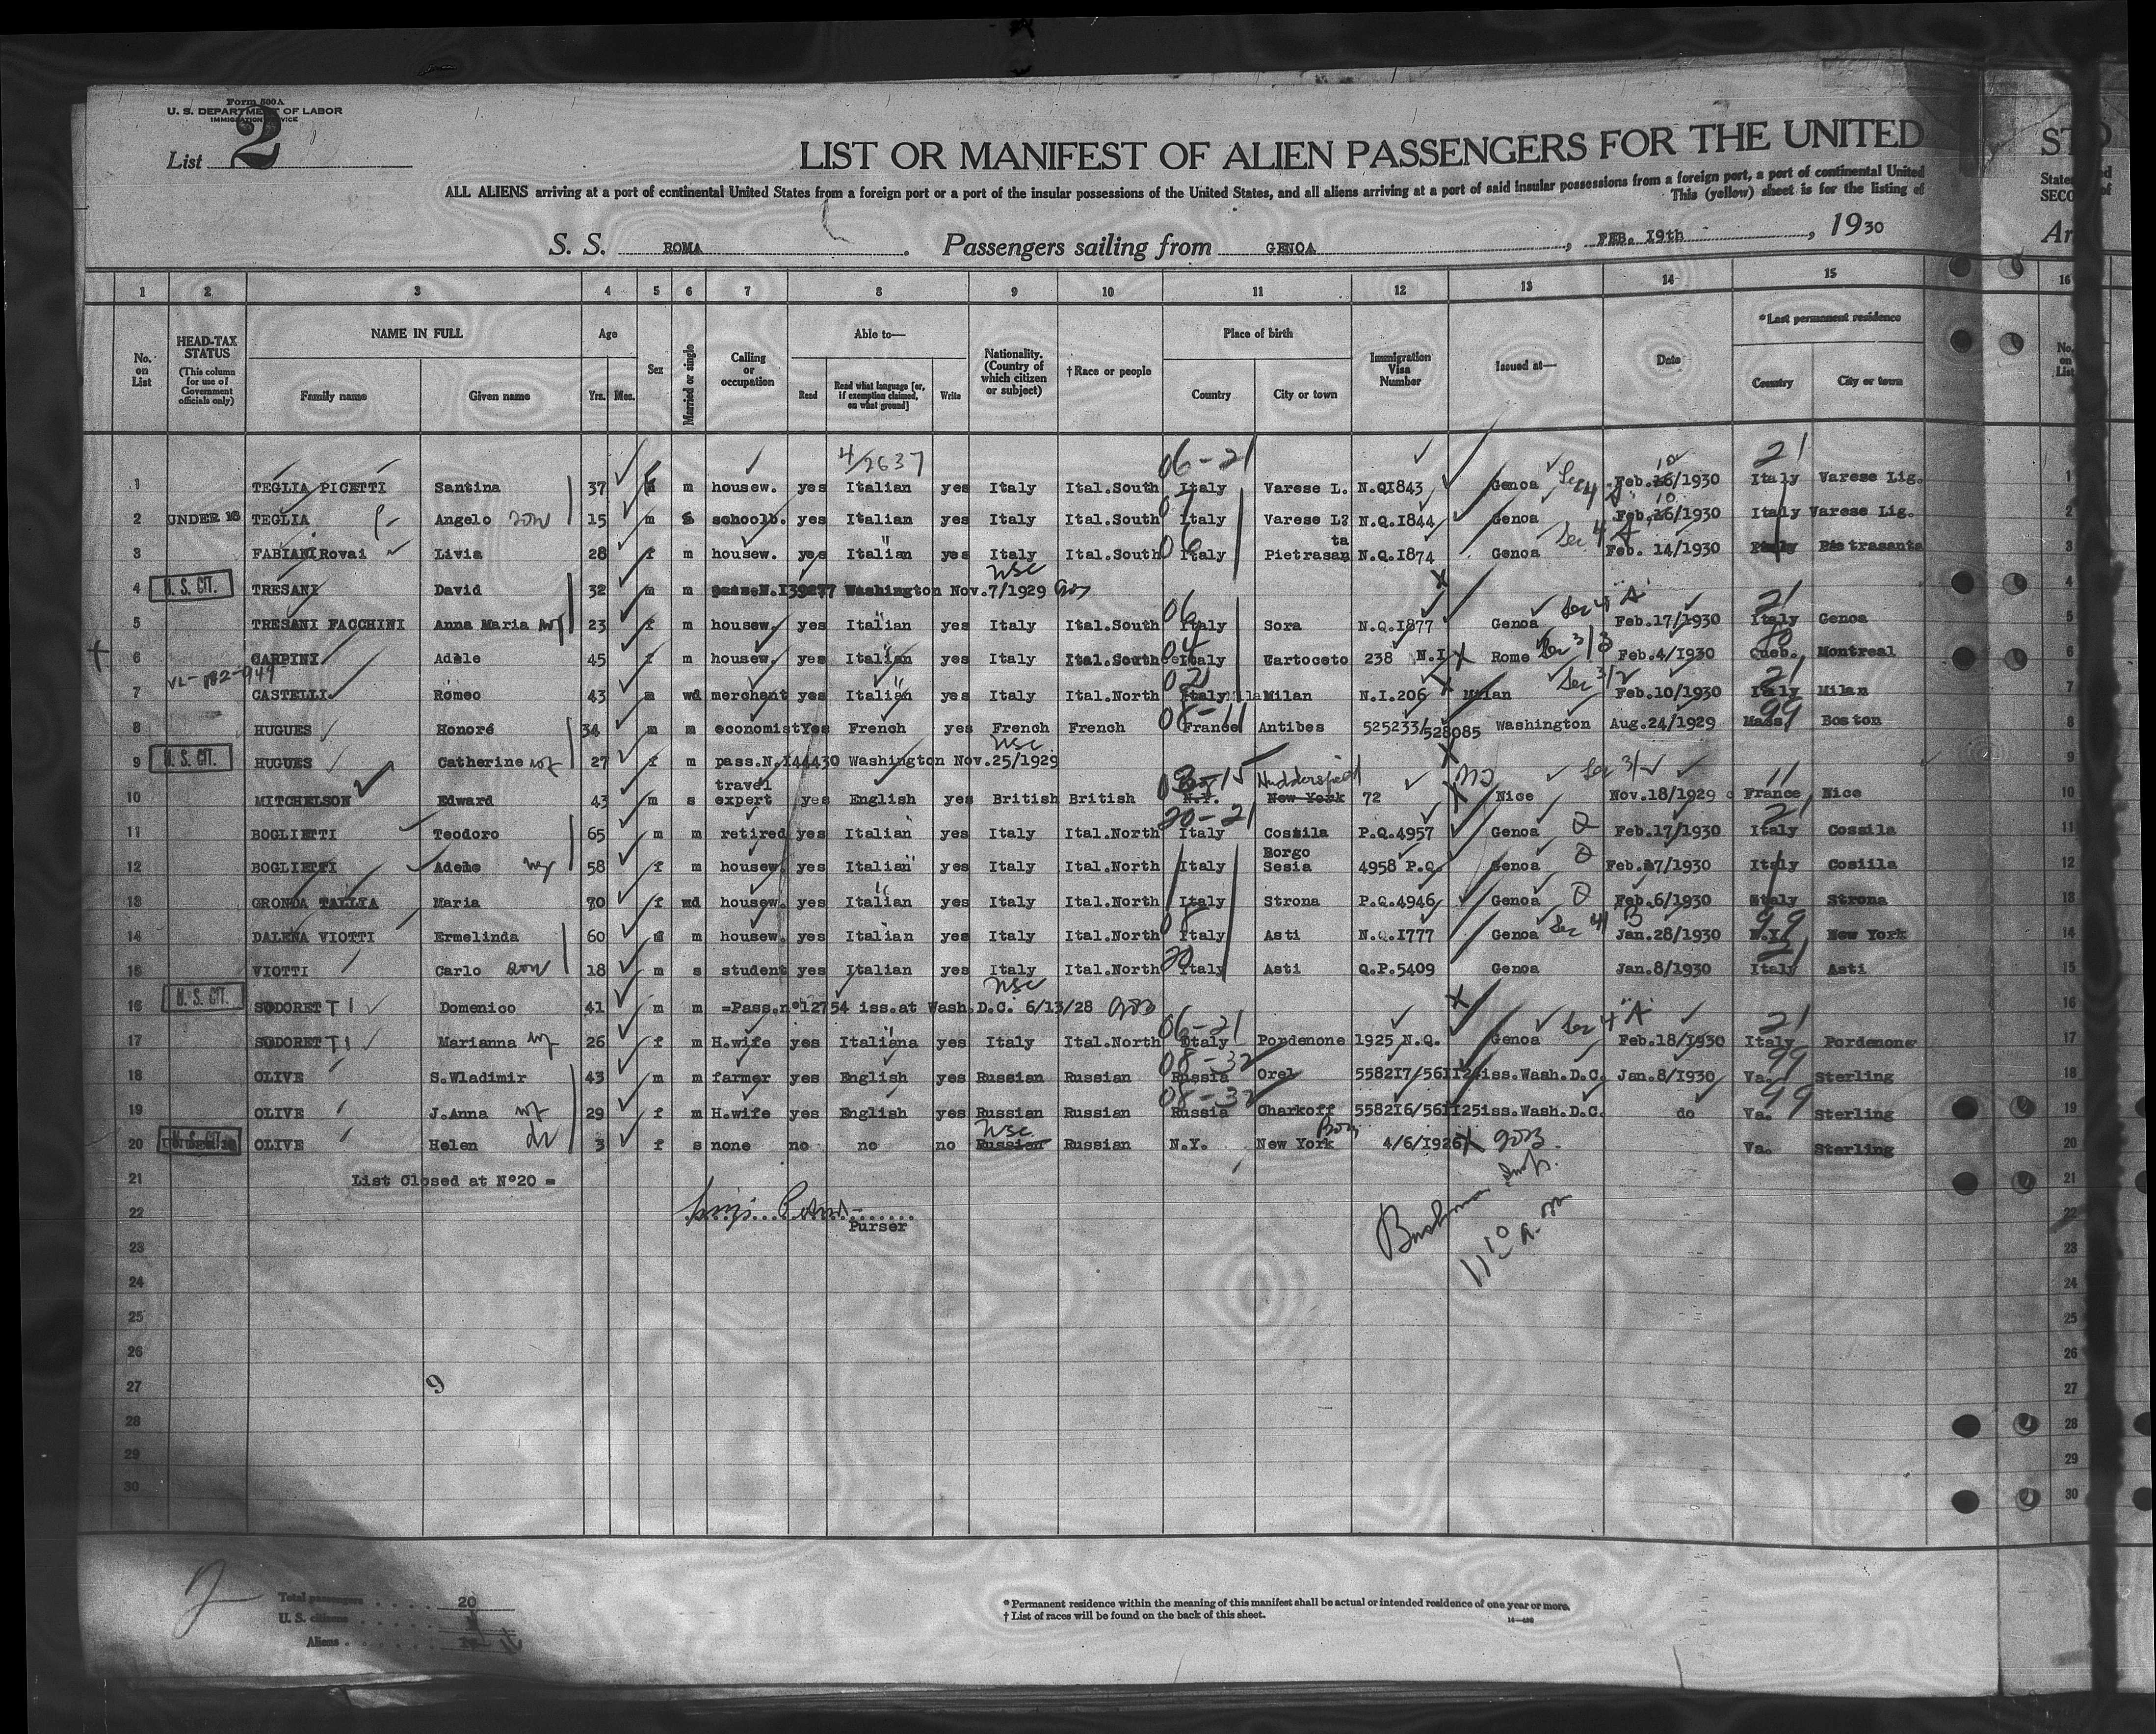 Form 500A
U. S. DEPARTMENT OF LABOR
IMMIGRATION SERVICE
List 2
LIST OR MANIFEST OF ALIEN PASSENGERS FOR THE UNITED
ST
ALL ALIENS arriving at a port of continental United States from a foreign port or a port of the insular possessions of the United States, and all aliens arriving at a port of said insular possessions from a foreign port, a port of continental United
This (yellow) sheet is for the listing of
State
SECO
S. S. ROMA. Passengers sailing from GENOA, FEB. 19th, 1930
Ar
1 2 3 4 5 6 7 8 9 10 11 12 13 14 15 16
No. on List
HEAD-TAX STATUS (This column for use of Government officials only)
NAME IN FULL
Family name Given name
Age
Yrs. Mos.
Sex
Married or single
Calling or occupation
Able to—
Read Read what language [or, if exemption claimed, on what ground] Write
Nationality. (Country of which citizen or subject)
†Race or people
Place of birth
Country City or town
Immigration Visa Number
Issued at—
Date
*Last permanent residence
Country City or town
No. on List
4/2637 06-21 21
1 TEGLIA PICETTI Santina 37 m housew. yes Italian yes Italy Ital.South Italy Varese L. N.Q1843 Genoa Feb. /1930 Italy Varese Lig. 1
2 UNDER 16 TEGLIA Angelo son 15 m s schoolb. yes Italian yes Italy Ital.South Italy Varese L? N.Q.1844 Genoa Feb. /1930 Italy Varese Lig. 2
3 FABIANI Rovai Livia 28 f m housew. yes Italian yes Italy Ital.South Italy Pietrasanta N.Q.1874 Genoa Sec 4 A Feb. 14/1930 Italy Pietrasanta 3
4 U. S. CIT. TRESANI David 32 m m Washington Nov.7/1929 USC 4
5 TRESANI FACCHINI Anna Maria wf 23 f m housew. yes Italian yes Italy Ital.South 06 Italy Sora N.Q.1877 Genoa Sec 4 "A" Feb.17/1930 21 Italy Genoa 5
6 CARPINI Adèle 45 f m housew. yes Italian yes Italy Ital.South 04 Italy Cartoceto 238 N.I Rome Sec 3/3 Feb.4/1930 Queb. Montreal 6
7 CASTELLI Romeo 43 m wd merchant yes Italian yes Italy Ital.North Italy Milan N.I.206 Milan Sec 3/2 Feb.10/1930 21 Italy Milan 7
8 HUGUES Honoré 34 m m economist Yes French yes French French 08-11 France Antibes 525233/528085 Washington Aug.24/1929 99 Mass. Boston 8
9 U. S. CIT. HUGUES Catherine wf 27 f m pass.N.144430 Washington Nov.25/1929 USC 9
10 MITCHELSON Edward 43 m s travel expert yes English yes British British N.Y. New York Huddersfield 72 Nice Sec 3/2 Nov.18/1929 11 France Nice 10
11 BOGLIETTI Teodoro 65 m m retired yes Italian yes Italy Ital.North 20-21 Italy Cossila P.Q.4957 Genoa Feb.17/1930 21 Italy Cossila 11
12 BOGLIETTI Adele wf 58 f m housew. yes Italian yes Italy Ital.North Italy Borgo Sesia 4958 P.Q. Genoa Feb.17/1930 Italy Cosiila 12
13 GRONDA TALLIA Maria 70 f wd housew. yes Italian yes Italy Ital.North Italy Strona P.Q.4946 Genoa Feb.6/1930 Italy Strona 13
14 DALENA VIOTTI Ermelinda 60 m housew. yes Italian yes Italy Ital.North Italy Asti N.Q.1777 Genoa Sec 4 B Jan.28/1930 99 N.Y. New York 14
15 VIOTTI Carlo son 18 m s student yes Italian yes Italy Ital.North 20 Italy Asti Q.P.5409 Genoa Jan.8/1930 21 Italy Asti 15
16 U. S. CIT. SODORETTI Domenico 41 m m =Pass.n°12754 iss.at Wash.D.C. 6/13/28 USC 16
17 SODORETTI Marianna wf 26 f m H.wife yes Italiana yes Italy Ital.North 06-21 Italy Pordenone 1925 N.Q. Genoa Sec 4 "A" Feb.18/1930 21 Italy Pordenone 17
18 OLIVE S.Wladimir 43 m m farmer yes English yes Russian Russian 08-32 Russia Orel 558217/561124 iss.Wash.D.C. Jan.8/1930 99 Va. Sterling 18
19 OLIVE J.Anna wf 29 f m H.wife yes English yes Russian Russian 08-32 Russia Charkoff 558216/561125 iss.Wash.D.C. do 99 Va. Sterling 19
20 U. S. CIT. OLIVE Helen 3 f s none no no no Russian USC Russian N.Y. New York Born 4/6/1926 Va. Sterling 20
21 List Closed at N°20 = 21
22 Purser 22
Bushman Insp.
11 10 a.m
23 23
24 24
25 25
26 26
27 9 27
28 28
29 29
30 30
2
Total passengers 20
U. S. citizens
Aliens
* Permanent residence within the meaning of this manifest shall be actual or intended residence of one year or more.
† List of races will be found on the back of this sheet.